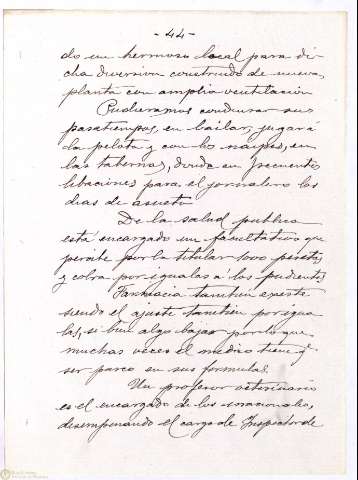 - 44 -
do un hermoso local para di-
cha diversion construido de nueva
planta con amplia ventilación
Pudieramos condensar sus
pasatiempos, en bailar, jugar á
la pelota y con los naipes, en
las tabernas, donde en frecuentes
libaciones para el jornalero los
dias de asueto
De la salud publica
está encargado un facultativo que
percibe por la titular 1000 pesetas
y cobra por igualas á los pudientes
Farmacia tambien existe
siendo el ajuste tambien por igua
las, si bien algo bajas por lo que
muchas veces el medico tiene q.
ser parco en sus formulas.
Un profesor veterinario
es el encargado de los
desempeñando el cargo de Inspector de